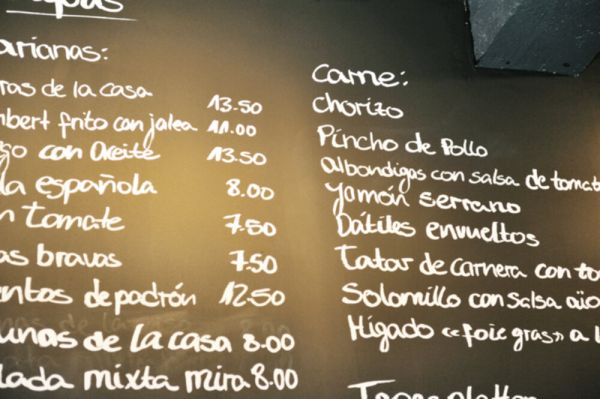 Tapas
arianas:
ras de la casa 13.50
mbert frito con jalea 11.00
so con Aceite 13.50
la española 8.00
n tomate 7.50
as bravas 7.50
entos de padrón 12.50
unas de la casa 8.00
lada mixta mira 8.00
Carne:
Chorizo
Pincho de Pollo
Albondigas con salsa de tomat
Yamón serrano
Dátiles envueltos
Tatar de carnera con to
Solomillo con salsa aïo
Hígado «foie gras» a l